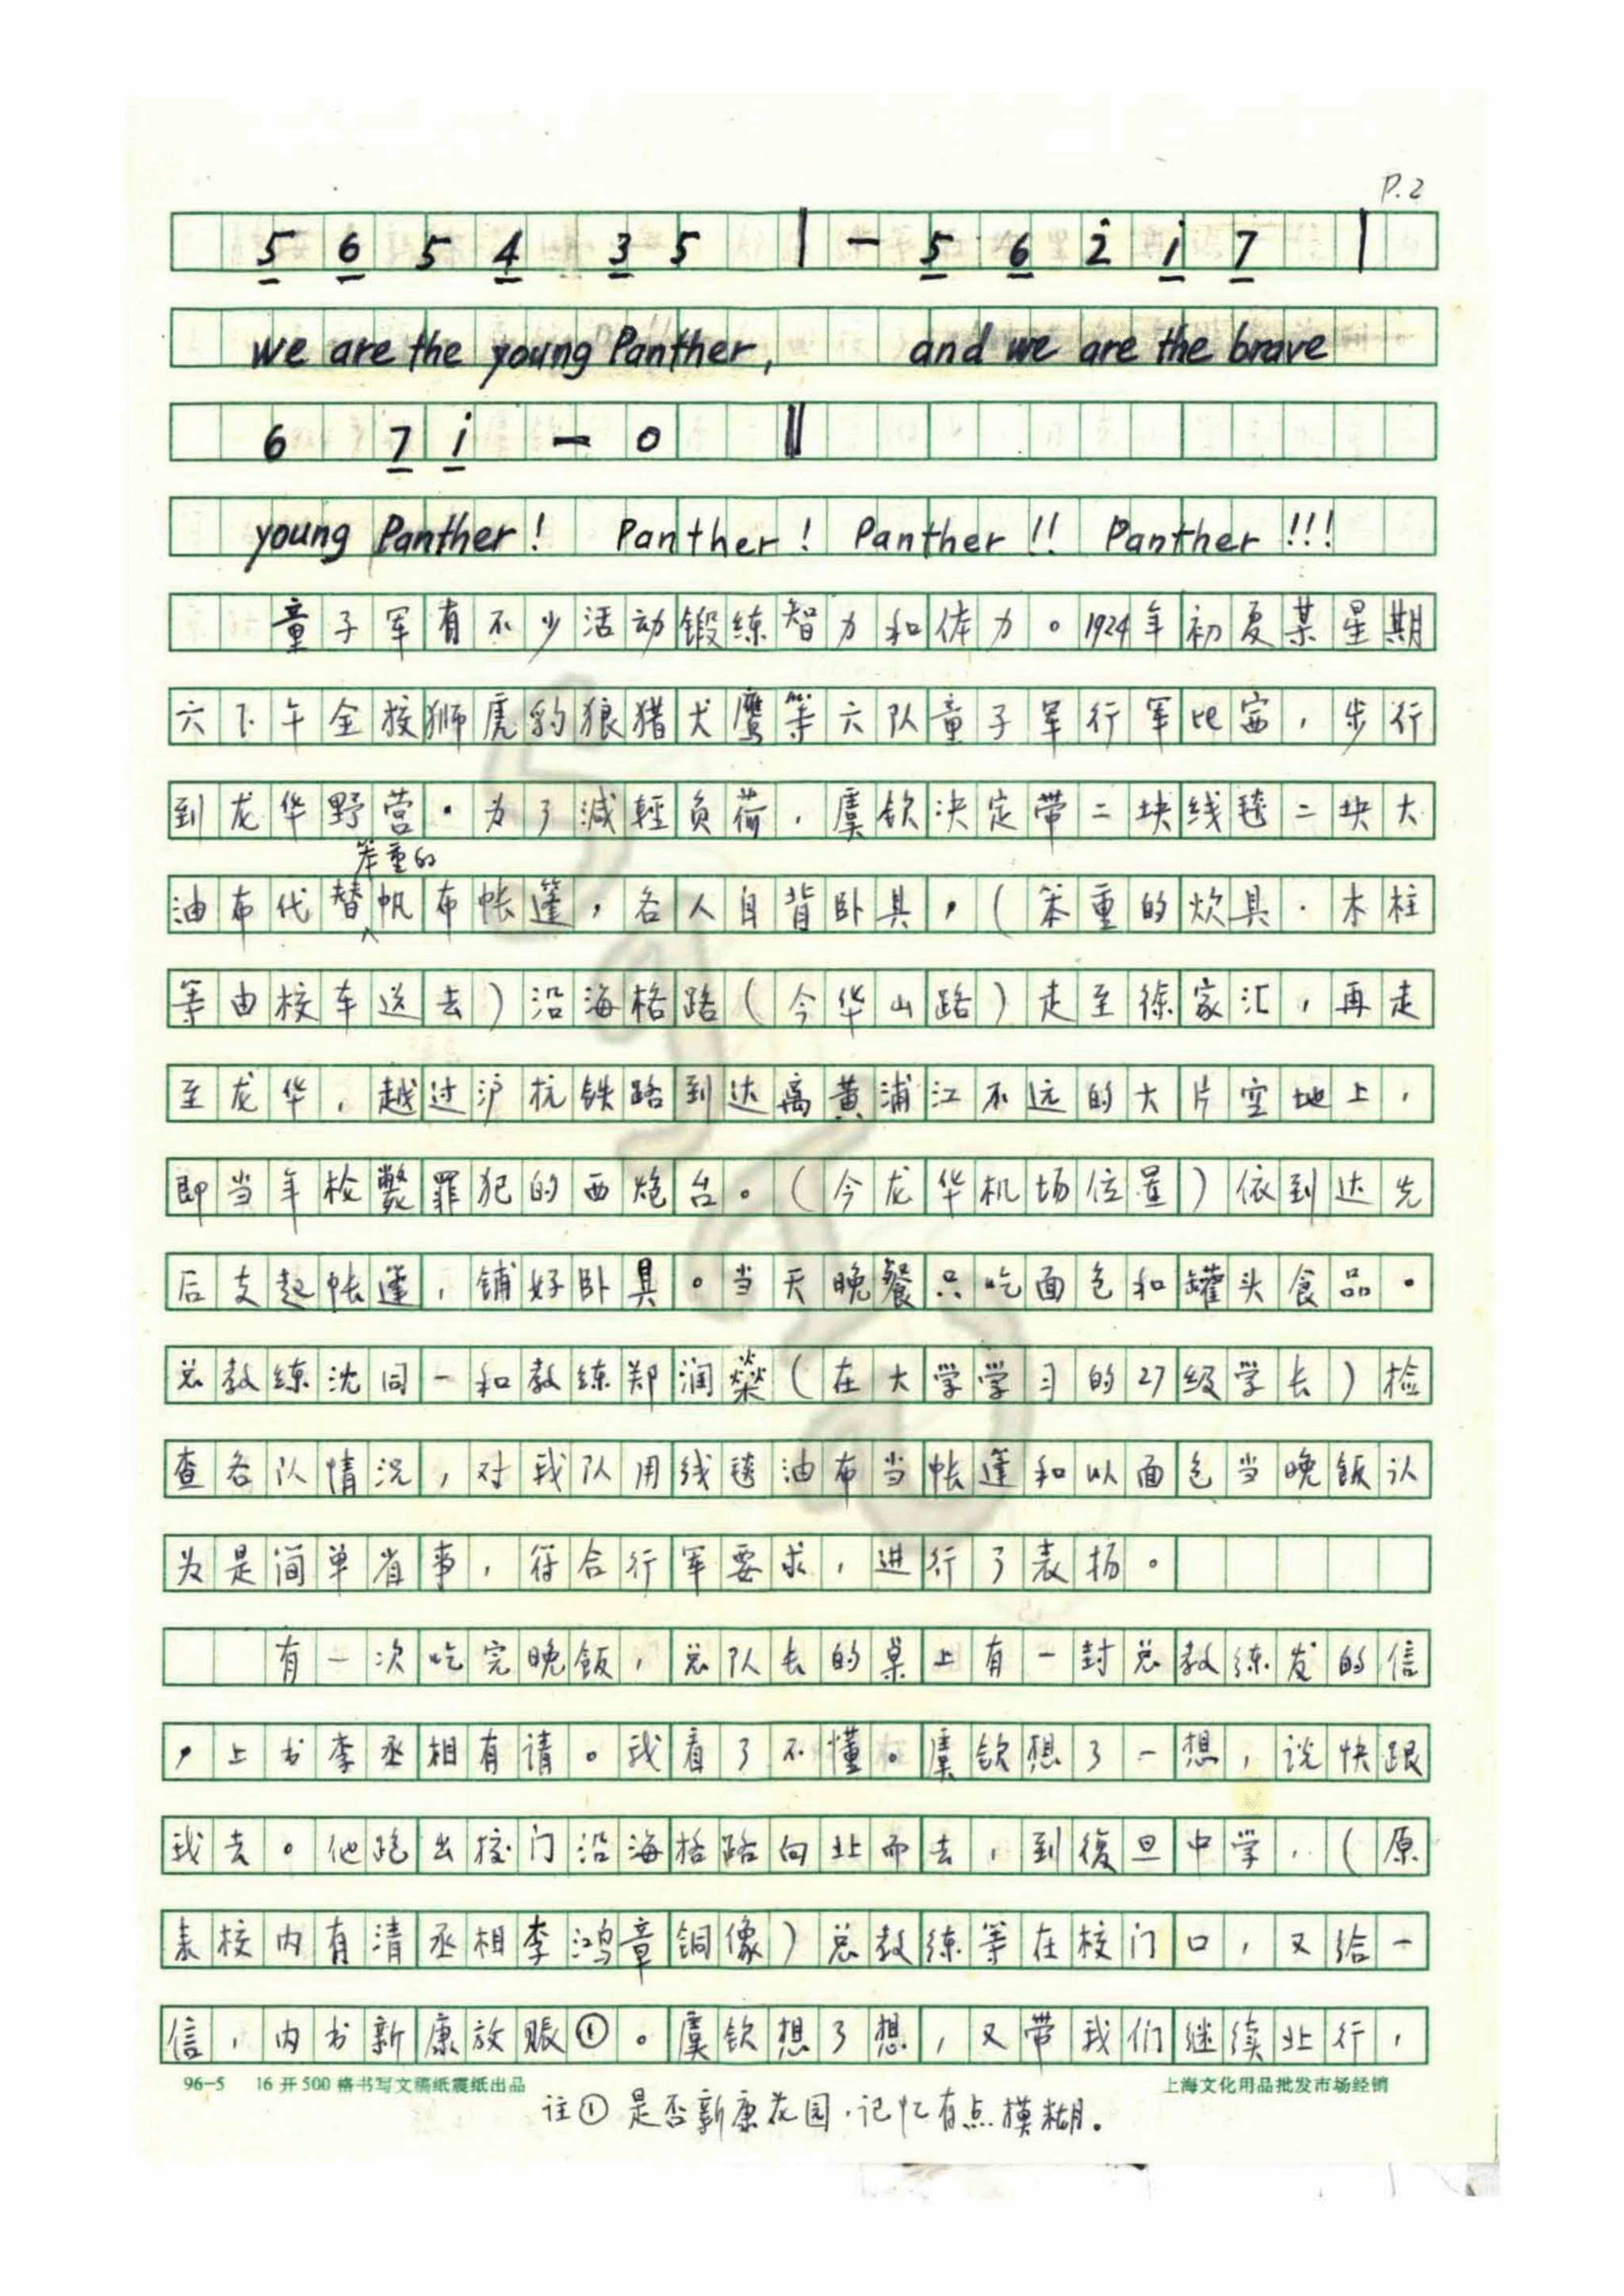 P.2
5 6 5 4 3 5 | - 5 6 2̇ i 7 |
we are the young Panther, and we are the brave
6 7 i - 0 ‖
young Panther! Panther! Panther!! Panther!!!
童子军有不少活动锻练智力和体力。1924年初夏某星期
六下午全校狮虎豹狼猎犬鹰等六队童子军行军比赛,步行
到龙华野营。为了减輕负荷,虞钦决定带二块线毯二块大
笨重的
油布代替帆布帐篷,各人自背卧具,(笨重的炊具、木柱
等由校车送去)沿海格路(今华山路)走至徐家汇,再走
至龙华,越过沪杭铁路到达离黄浦江不远的大片空地上,
即当年枪斃罪犯的西炮台。(今龙华机场位置)依到达先
后支起帐篷,铺好卧具。当天晚餐只吃面包和罐头食品。
总教练沈同一和教练郑润燊(在大学学习的27级学长)检
查各队情况,对我队用线毯油布当帐篷和以面包当晚饭认
为是简单省事,符合行军要求,进行了表扬。
有一次吃完晚饭,总队长的桌上有一封总教练发的信
,上书李丞相有请。我看了不懂。虞钦想了一想,说快跟
我去。他跑出校门沿海格路向北而去,到復旦中学,(原
来校内有清丞相李鸿章铜像)总教练等在校门口,又给一
信,内书新康放赈①。虞钦想了想,又带我们继续北行,
96-5 16开500格书写文稿纸震纸出品 上海文化用品批发市场经销
注① 是否新康花园,记忆有点模糊。